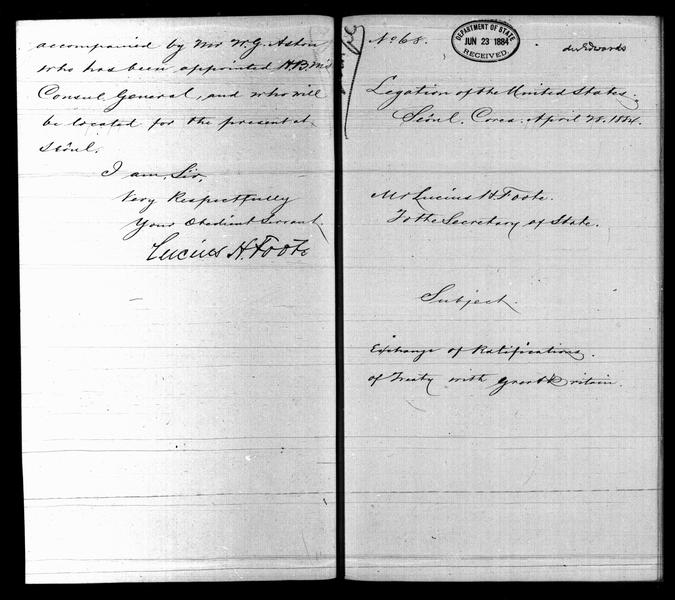 accompanied by Mr W. G. Aston
who has been appointed H.B.M's
Consul General, and who will
be located for the present at
Sëoul.
I am, Sir,
Very Respectfully
Your Obedient Servant
Lucius H. Foote
No 68.
DEPARTMENT OF STATE
JUN 23 1884
RECEIVED
Legation of the United States.
Sëoul. Corea. April 28. 1884.
Mr Lucius H. Foote.
To the Secretary of State.
Subject.
Exchange of Ratifications.
of Treaty with Great Britain.